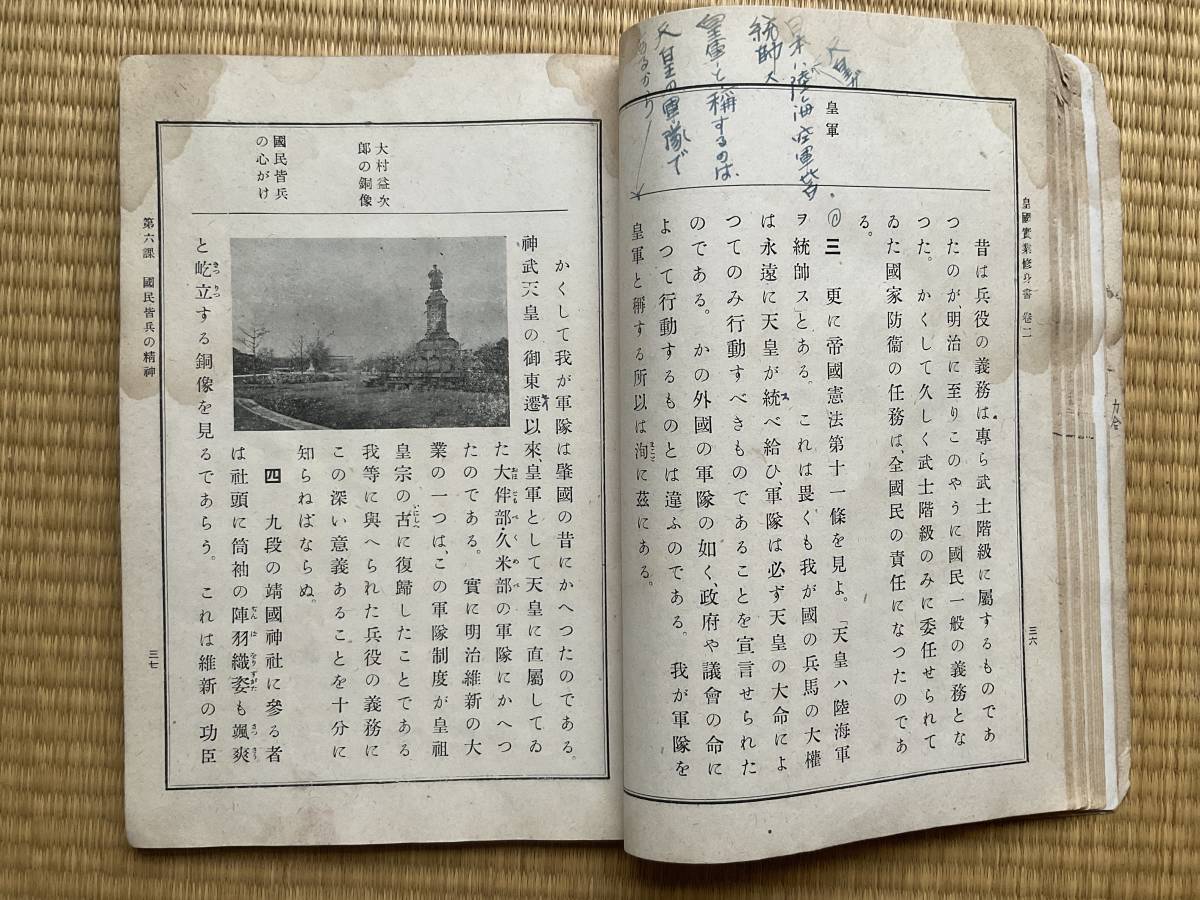 皇國實業修身書 卷二
三六
皇軍
昔は兵役の義務は專ら武士階級に屬するものであ
つたのが、明治に至りこのやうに國民一般の義務とな
つた。かくして久しく武士階級のみに委任せられて
ゐた國家防衞の任務は、全國民の責任になつたのであ
る。
三 更に帝國憲法第十一條を見よ。「天皇ハ陸海軍
ヲ統帥ス」とある。これは畏くも我が國の兵馬の大權
は永遠に天皇が統べ給ひ、軍隊は必ず天皇の大命によ
つてのみ行動すべきものであることを宣言せられた
のである。かの外國の軍隊の如く、政府や議會の命に
よつて行動するものとは違ふのである。我が軍隊を
皇軍と稱する所以は洵に茲にある。
日本ハ陸海空軍皆
統帥ス
皇軍と稱するのは
天皇の軍隊で
あるから
大村益次
郎の銅像
國民皆兵
の心がけ
かくして我が軍隊は肇國の昔にかへつたのである。
神武天皇の御東遷以來、皇軍として天皇に直屬してゐ
た大伴部・久米部の軍隊にかへつ
たのである。實に明治維新の大
業の一つは、この軍隊制度が皇祖
皇宗の古に復歸したことである
我等に與へられた兵役の義務に
この深い意義あることを十分に
知らねばならぬ。
四 九段の靖國神社に參る者
は社頭に筒袖の陣羽織姿も颯爽
と屹立する銅像を見るであらう。これは維新の功臣
第六課 國民皆兵の精神
三七